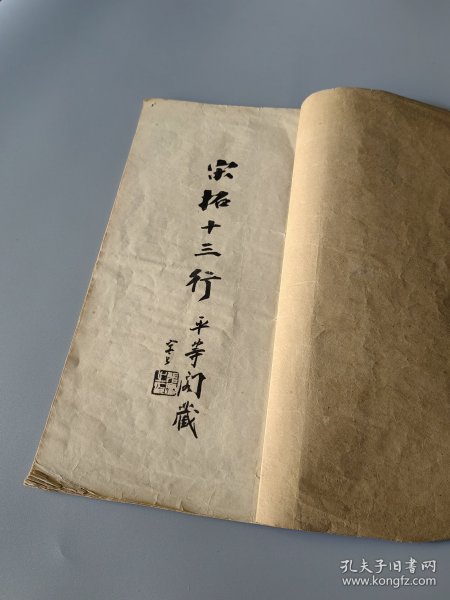 宋拓十三行
平等阁藏
孔夫子旧书网
www.kongfz.com